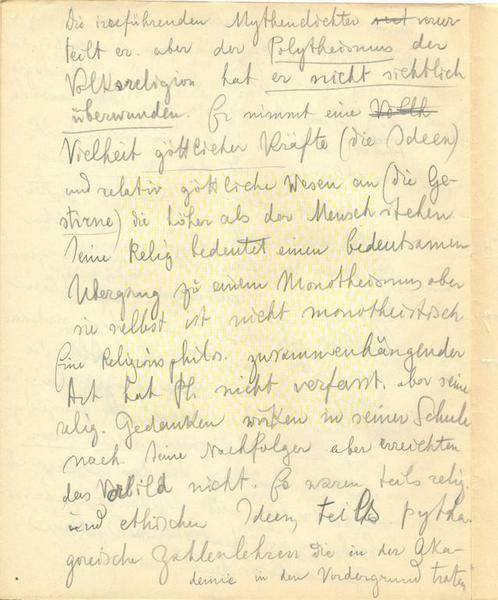 Die irreführenden Mythendichter verur-
teilt er. aber der Polytheismus der
Volksreligion hat er nicht sichtlich
überwunden. Er nimmt eine
Vielheit göttlicher Kräfte (die Ideen)
und relativ göttliche Wesen an (die Ge-
stirne) die höher als der Mensch stehen
Seine Relig bedeutet einen bedeutsamen
Übergang zu einem Monotheismus aber
sie selbst ist nicht monotheistisch
Eine Religionsphilos. zusammenhängender
Art hat Pl. nicht verfasst. aber seine
relig. Gedanken wirken in seiner Schule
nach. Seine Nachfolger aber erreichten
das Vorbild nicht. Es waren teils relig.
und ethischen Ideen, teils pytha-
goreische Zahlenlehren die in der Aka-
demie in den Vordergrund traten